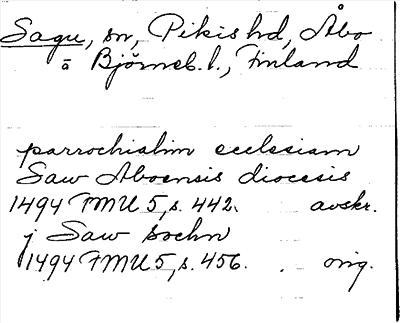 Sagu, sn, Pikis hd, Åbo
o Björneb. l., Finland
parrochialem ecclesiam
Saw Aboensis diocesis
1494 FMU 5, s. 442. avskr.
j Saw sochn
1494 FMU 5, s. 456. orig.